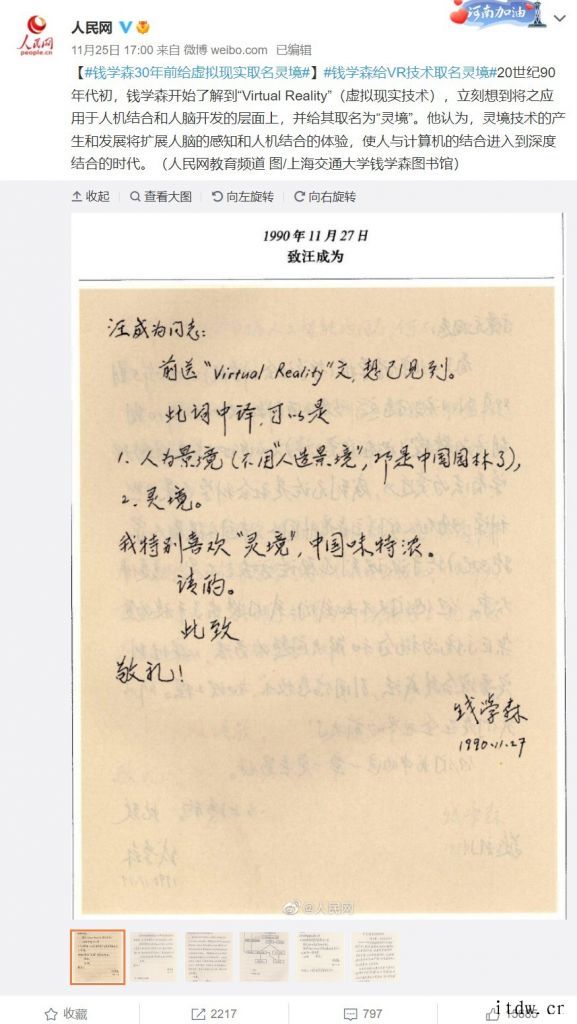 河南加油
人民网
people.cn
人民网
11月25日 17:00 来自 微博 weibo.com 已编辑
【#钱学森30年前给虚拟现实取名灵境#】#钱学森给VR技术取名灵境#20世纪90
年代初，钱学森开始了解到“Virtual Reality”（虚拟现实技术），立刻想到将之应
用于人机结合和人脑开发的层面上，并给其取名为“灵境”。他认为，灵境技术的产
生和发展将扩展人脑的感知和人机结合的体验，使人与计算机的结合进入到深度
结合的时代。（人民网教育频道 图/上海交通大学钱学森图书馆）
收起 查看大图 向左旋转 向右旋转
1990年11月27日
致汪成为
汪成为同志：
前送“Virtual Reality”文，想已见到。
此词中译，可以是
1. 人为景境（不用“人造景境”，那是中国园林了），
2. 灵境。
我特别喜欢“灵境”，中国味特浓。
请酌。
此致
敬礼！
钱学森
1990.11.27
@人民网
收藏 2217 797
itdw.cn